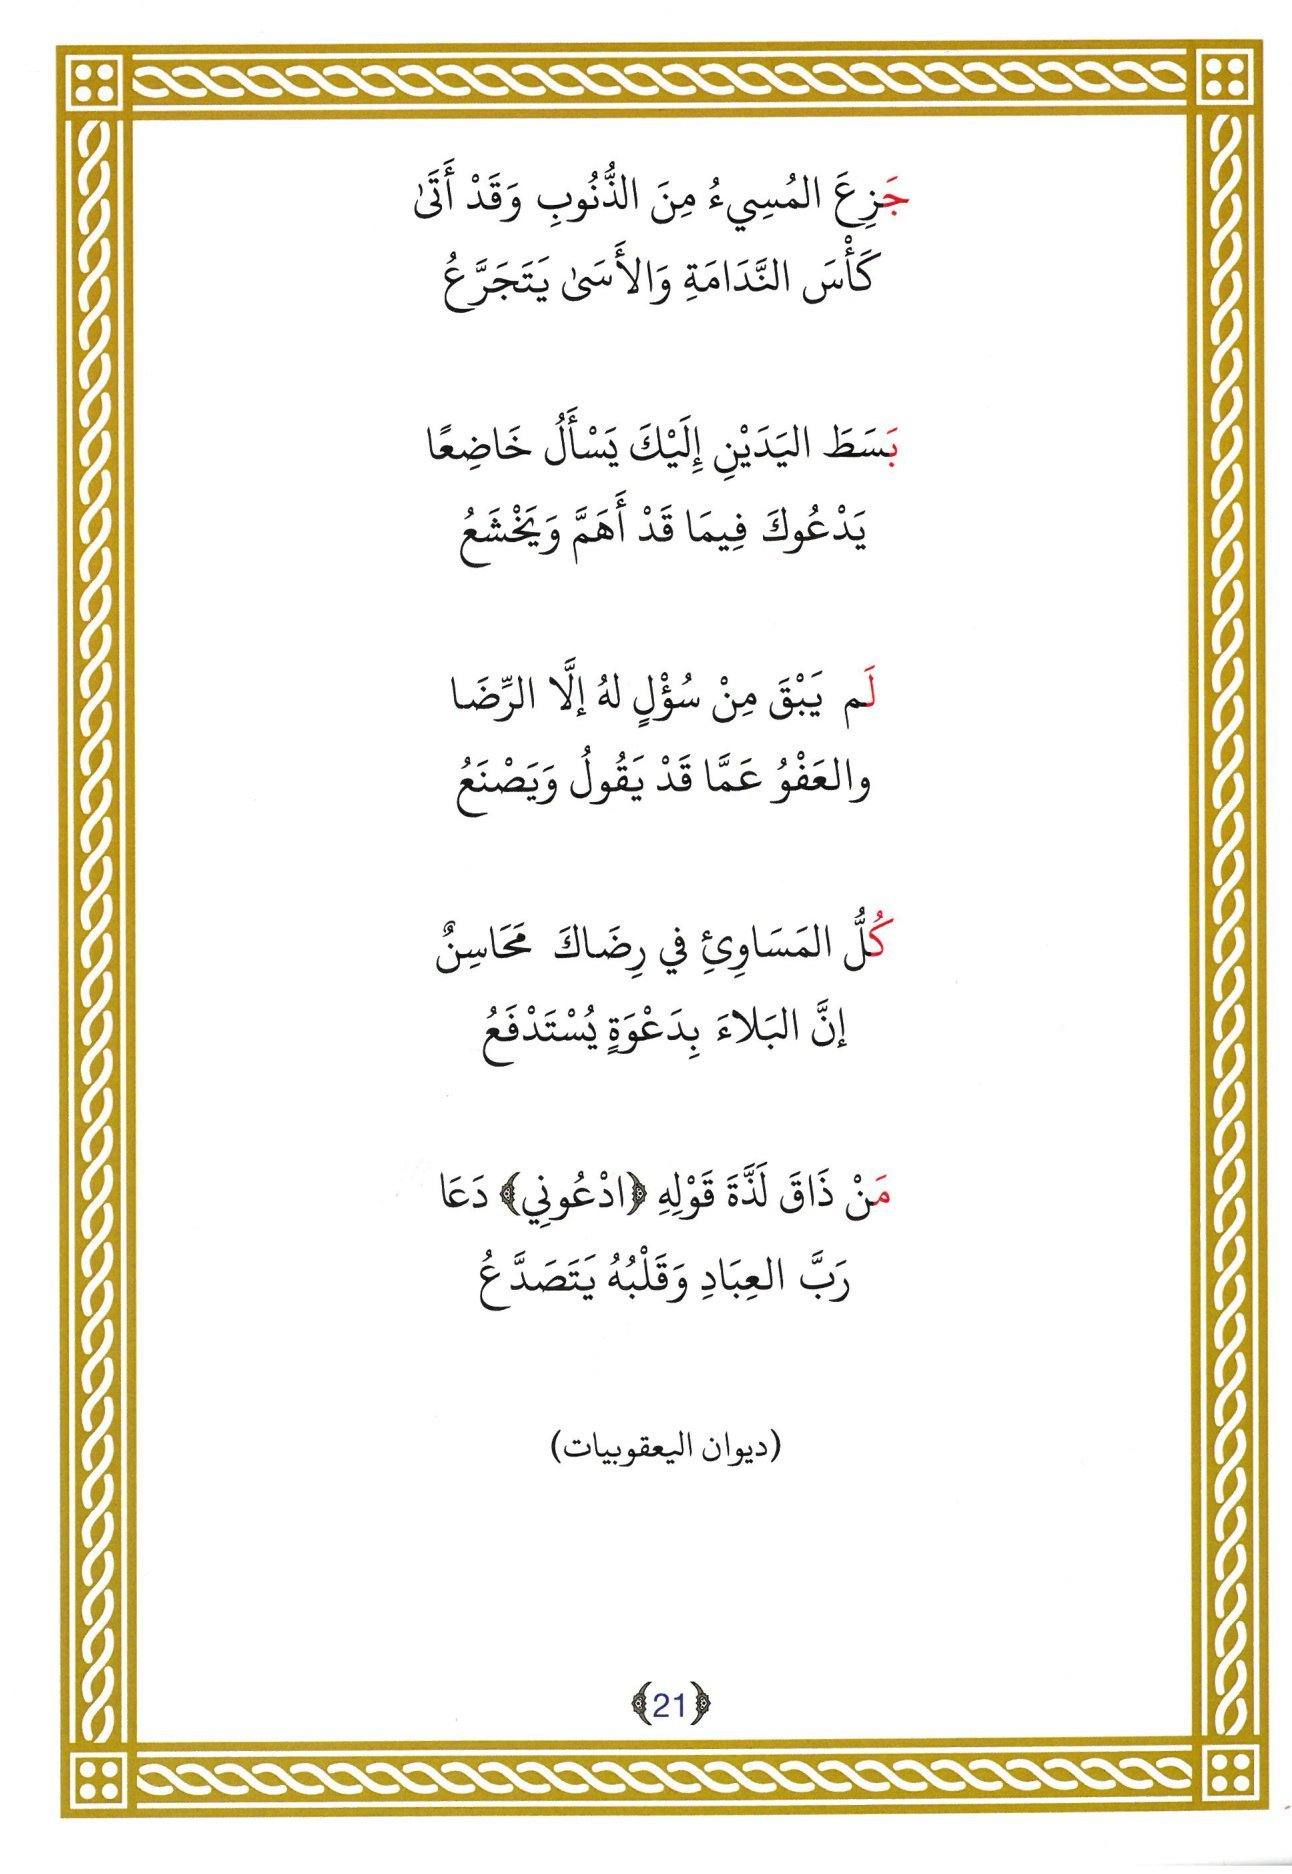 جَزِعَ المُسِيءُ مِنَ الذُّنُوبِ وَقَدْ أَتَىٰ
كَأْسَ النَّدَامَةِ وَالأَسَىٰ يَتَجَرَّعُ
بَسَطَ اليَدَيْنِ إِلَيْكَ يَسْأَلُ خَاضِعًا
يَدْعُوكَ فِيمَا قَدْ أَهَمَّ وَيَخْشَعُ
لَم يَبْقَ مِنْ سُؤْلٍ لهُ إلَّا الرِّضَا
والعَفْوُ عَمَّا قَدْ يَقُولُ وَيَصْنَعُ
كُلُّ المَسَاوِئِ في رِضَاكَ مَحَاسِنٌ
إنَّ البَلاءَ بِدَعْوَةٍ يُسْتَدْفَعُ
مَنْ ذَاقَ لَذَّةَ قَوْلِهِ ﴿ادْعُونِي﴾ دَعَا
رَبَّ العِبَادِ وَقَلْبُهُ يَتَصَدَّعُ
(ديوان اليعقوبيات)
﴿21﴾